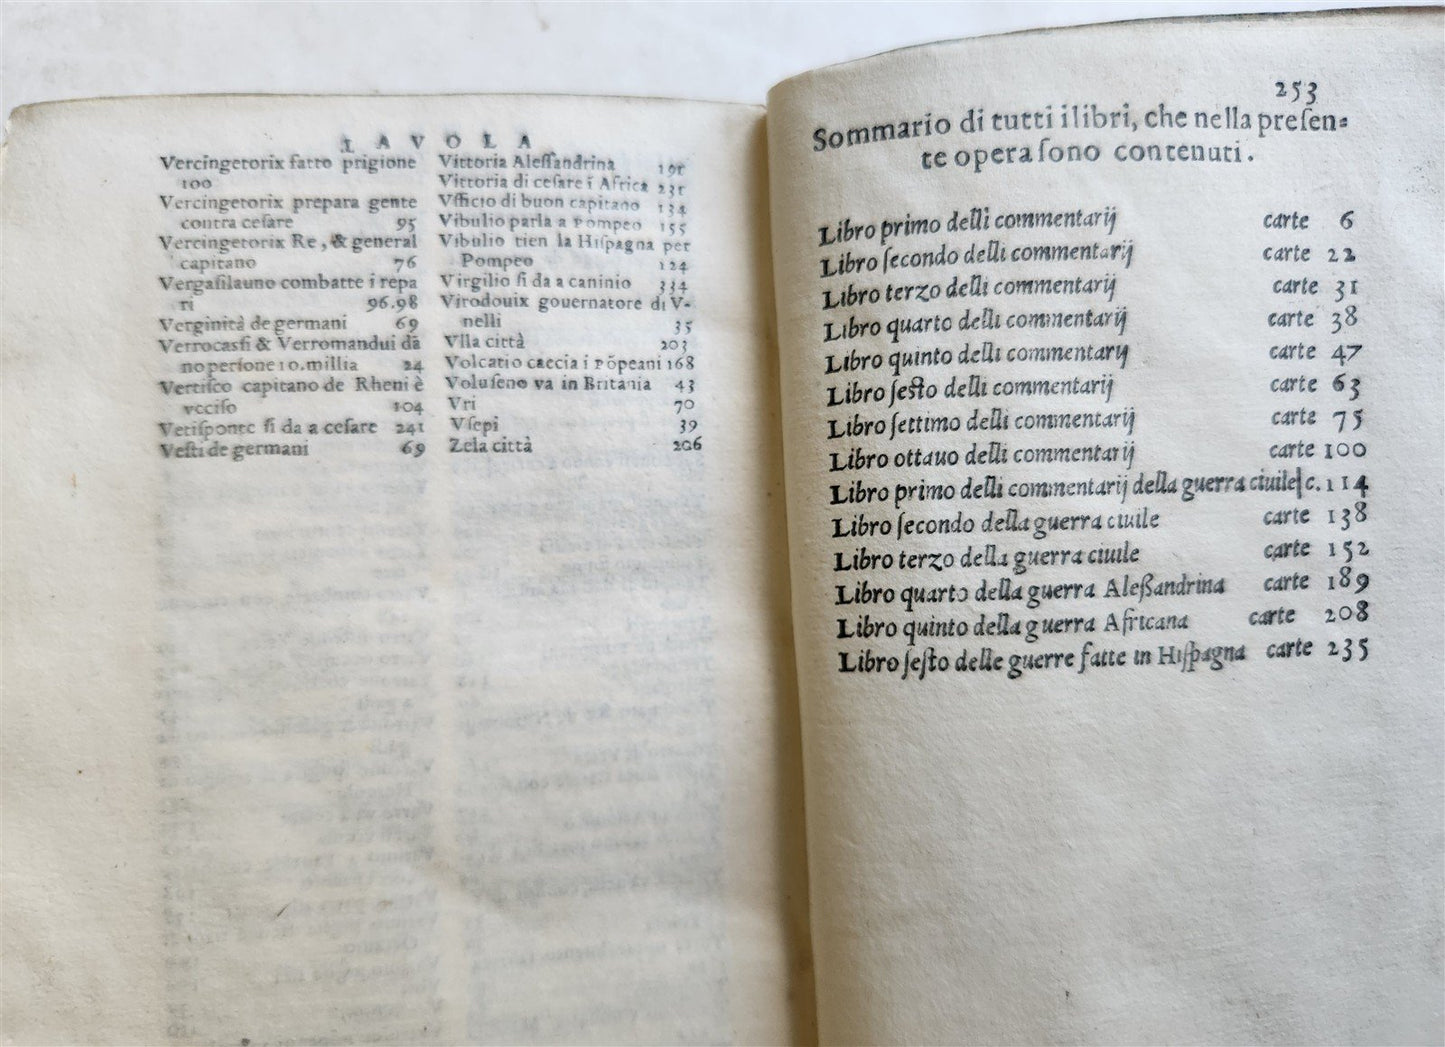 TAVOLA
Vercingetorix fatto prigione
100
Vercingetorix prepara gente
contra cesare 95
Vercingetorix Re, & general
capitano 76
Vergasilauno combatte i repa
ri 96.98
Verginità de germani 69
Verrocassi & Verromandui dā
no persone 10.millia 24
Vertisco capitano de Rheni è
vcciso 104
Vetisponte si da a cesare 241
Vesti de germani 69
Vittoria Alessandrina 191
Vittoria di cesare ī Africa 231
Vfficio di buon capitano 134
Vibulio parla a Pompeo 155
Vibulio tien la Hispagna per
Pompeo 124
Virgilio si da a caninio 334
Virodouix gouernatore di V-
nelli 35
Vlla città 203
Volcatio caccia i Pōpeani 168
Voluseno va in Britania 43
Vri 70
Vsepi 39
Zela città 206
253
Sommario di tutti i libri, che nella presen-
te opera sono contenuti.
Libro primo delli commentarij carte 6
Libro secondo delli commentarij carte 22
Libro terzo delli commentarij carte 31
Libro quarto delli commentarij carte 38
Libro quinto delli commentarij carte 47
Libro sesto delli commentarij carte 63
Libro settimo delli commentarij carte 75
Libro ottauo delli commentarij carte 100
Libro primo delli commentarij della guerra ciuile c. 114
Libro secondo della guerra ciuile carte 138
Libro terzo della guerra ciuile carte 152
Libro quarto della guerra Aleßandrina carte 189
Libro quinto della guerra Africana carte 208
Libro sesto delle guerre fatte in Hispagna carte 235